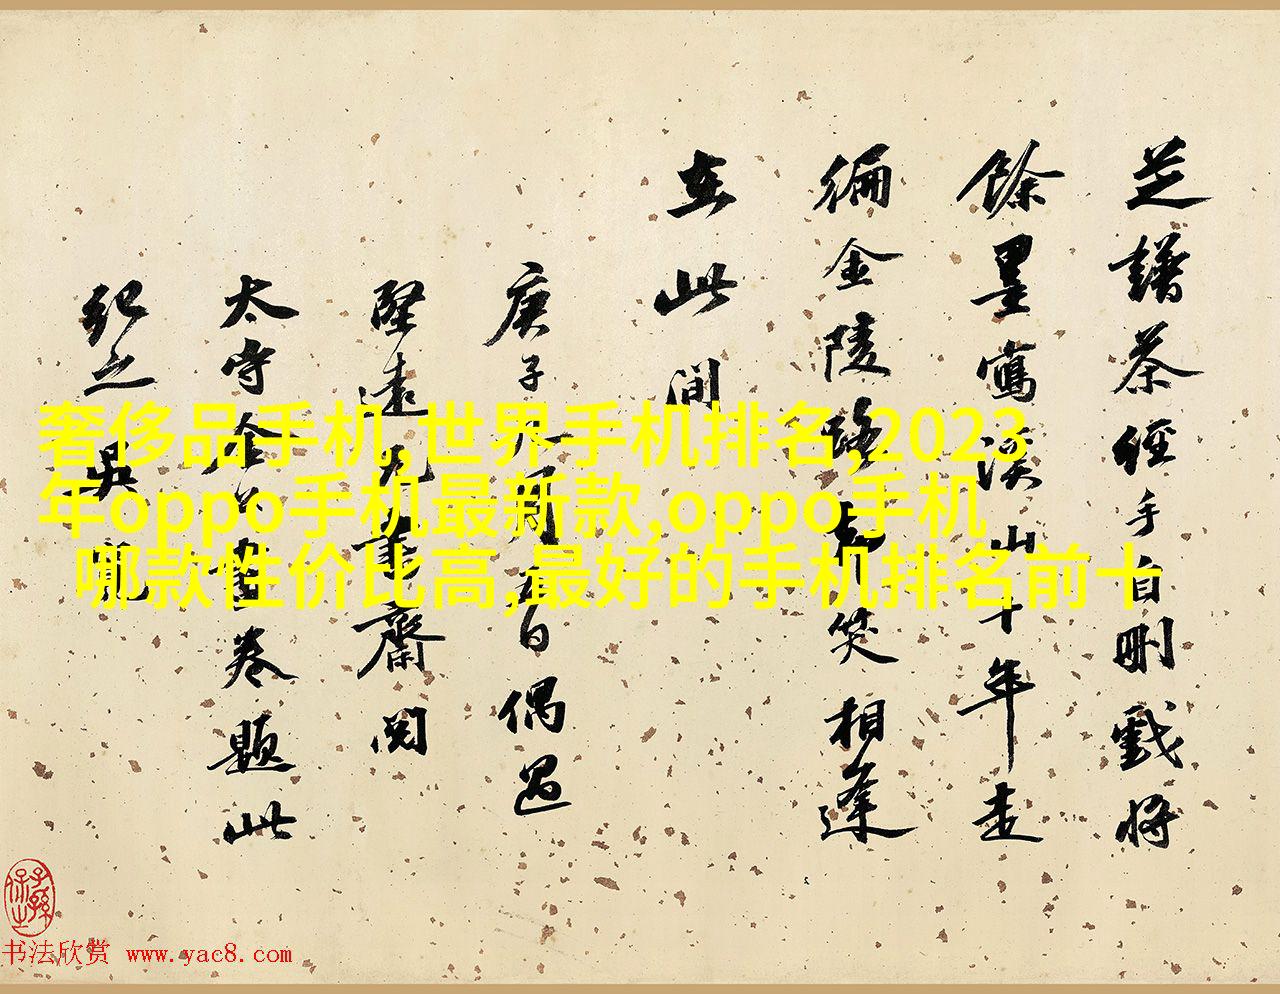 芝譜茶經手自刪戲將
餘墨寫溪山十年走
徧金陵路 笑相逢
在此間
庚子八月 日偶過
堅遠 齋閱
太守 公 卷題此
紀之 吳
奢侈品手机,世界手机排名,2023
年oppo手机最新款,oppo手机
哪款性价比高,最好的手机排名前十
子孫保之
书法欣赏 www.yac8.com